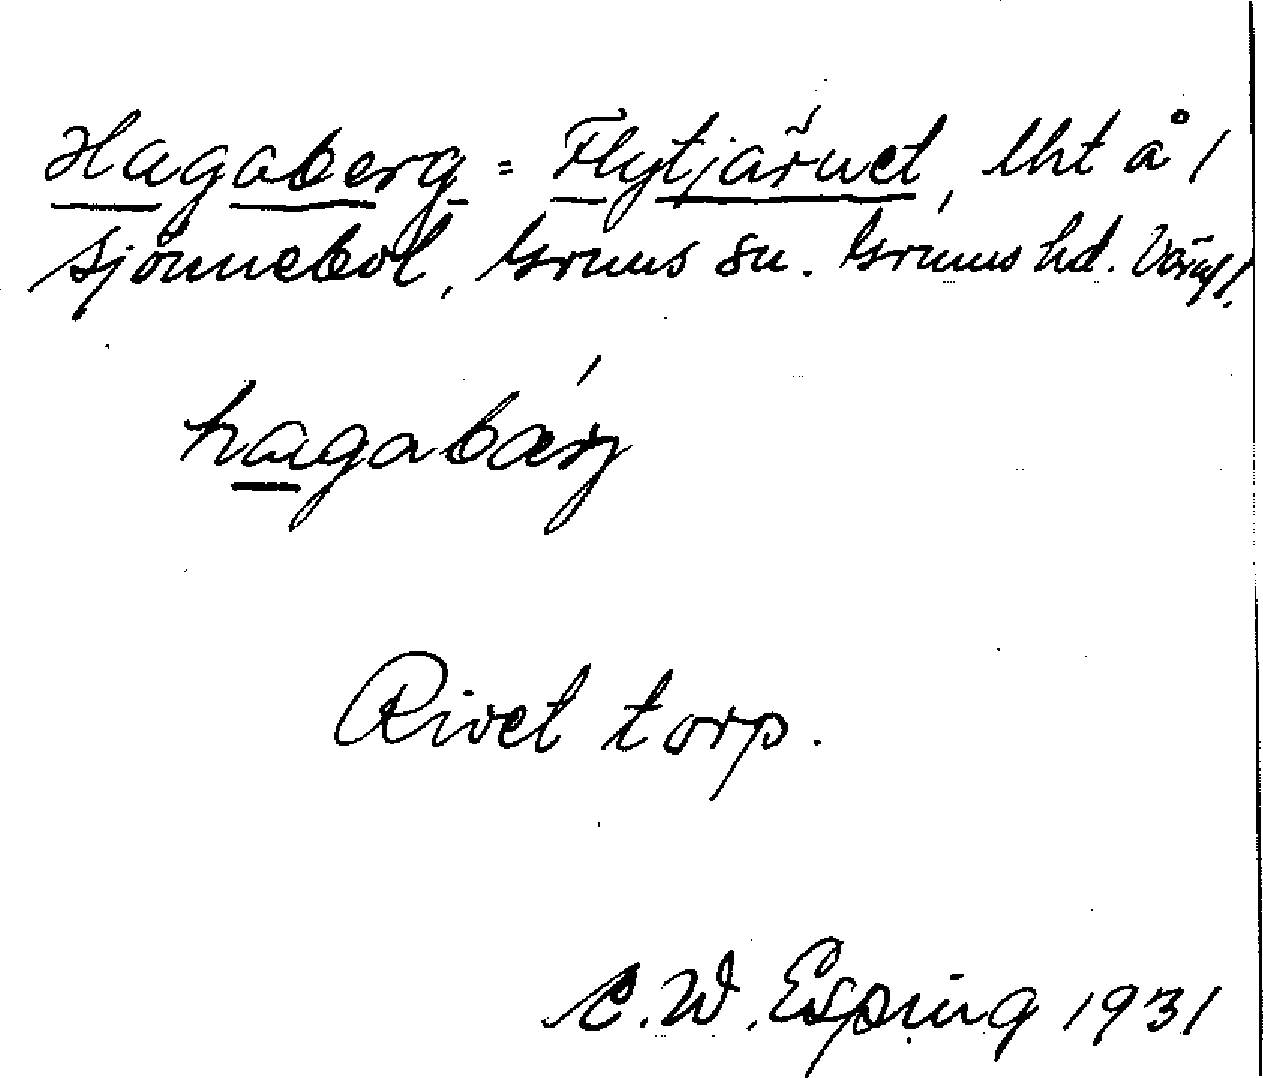 Hagaberg = Flytjärnet, lht å 1
Sjönnebol, Grums sn. Grums hd. Värml.
hagabärj
Rivet torp.
C. W. Esping 1931